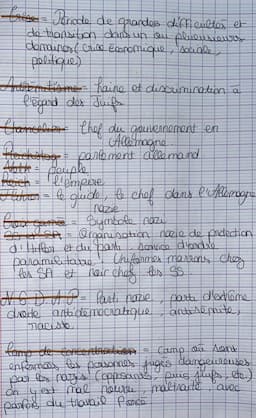 Crise = Période de grandes difficultés et
de transition dans un ou plusieurs
domaines (crise économique, sociale,
politique)
Antisémitisme = haine et discrimination à
l'égard des Juifs
Chancelier = Chef du gouvernement en
Allemagne
Reichstag = parlement allemand
Volk = peuple
Reich = l'empire
Führer = le guide, le chef dans l'Allemagne
nazie
Croix gammée = Symbole nazi
SA et SS = Organisation nazie de protection
d'Hitler et du parti, service d'ordre
paramilitaire. Uniformes marrons chez
les SA et noir chez les SS
N.S.D.A.P = Parti nazie, parti d'extrême
droite antidémocratique, antisémite,
raciste.
Camp de concentration = camp où sont
enfermées les personnes jugées dangereuses
par les nazis (opposants, juifs, etc)
on y est mal nourri, maltraité avec
parfois du travail forcé